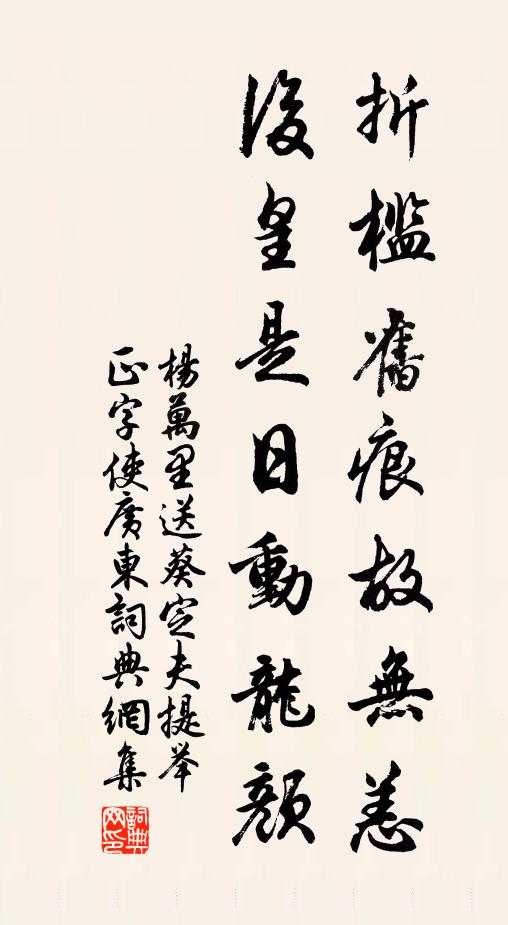 折檻舊痕故無恙
後皇是日動龍顏
楊萬里送蔡定夫提举
正字使廣東詞典網集
詞典
网印